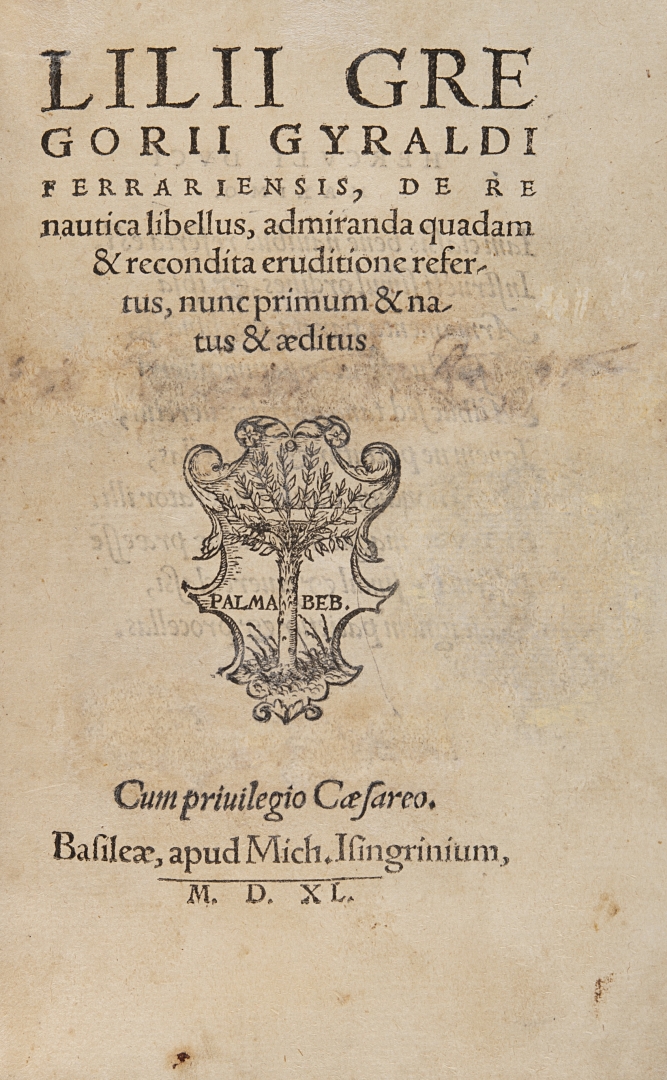 LILII GRE
GORII GYRALDI
FERRARIENSIS, DE RE
nautica libellus, admiranda quadam
& recondita eruditione refer-
tus, nunc primum & na-
tus & æditus
PALMA BEB.
Cum priuilegio Cæſareo.
Baſileæ, apud Mich. Iſingrinium,
M. D. XL.